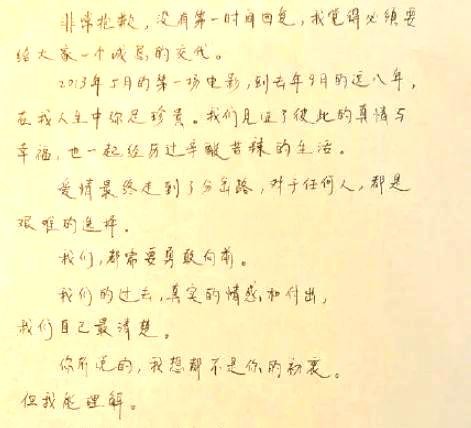 非常抱歉，没有第一时间回复，我觉得必须要
给大家一个成熟的交代。
2013年5月的第一场电影，到去年9月的这八年，
在我人生中弥足珍贵。我们见证了彼此的真情与
幸福，也一起经历过辛酸苦辣的生活。
爱情最终走到了分岔路，对于任何人，都是
艰难的选择。
我们，都需要勇敢向前。
我们的过去，真实的情感和付出，
我们自己最清楚。
你所说的，我想都不是你的初衷。
但我能理解。